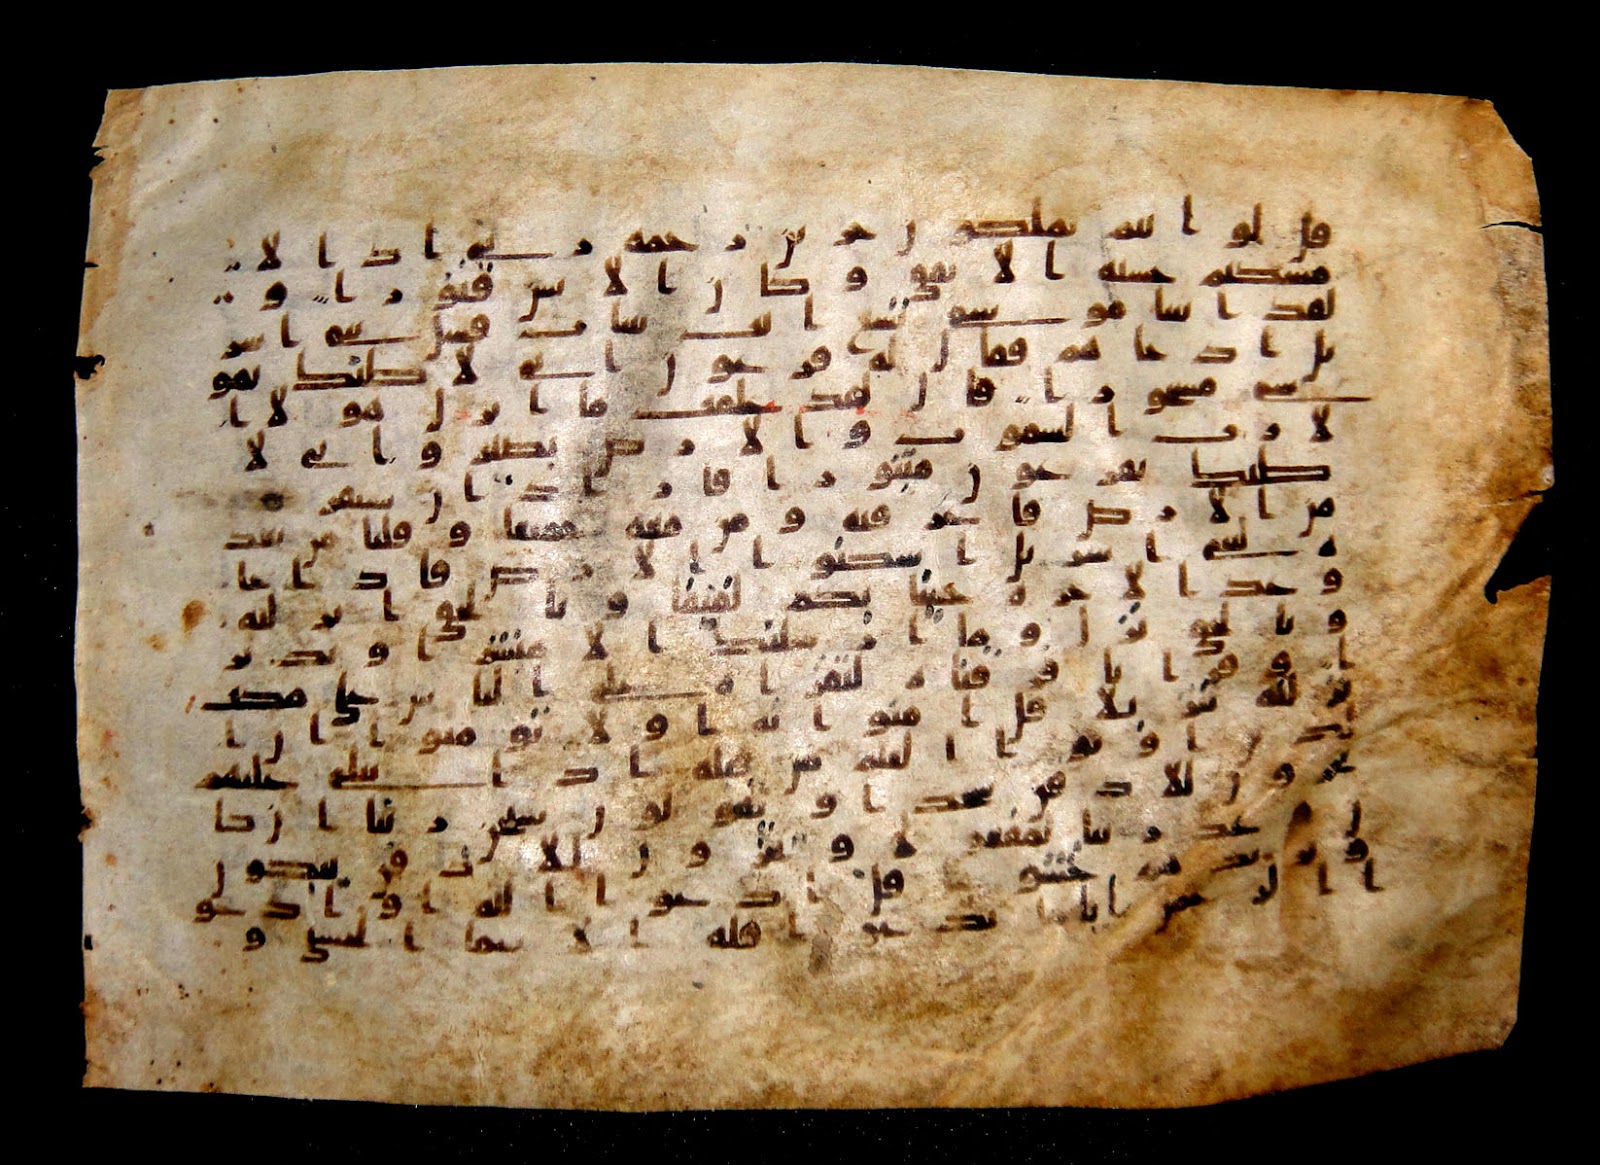 قل لو انتم تملكون خزين رحمة ربي اذا لا
مسكتم خشية الانفق وكان الانسن قتورا و
لقد اتينا موسى تسع ايت بينت فسل بني اسر
يل اذ جاهم فقال له فرعون اني لاظنك يمو
سى مسحورا قال لقد علمت ما انزل هولا ا
لا رب السموت والارض بصير واني لا
ظنك يفرعون مثبورا فاراد ان يستفز هم
من الارض فاغرقنه ومن معه جميعا وقلنا من بعد
ه لبني اسريل اسكنوا الارض فاذا جا
وعد الاخرة جينا بكم لفيفا وبالحق انزلنه
وبالحق نزل وما ارسلنك الا مبشرا ونذير
ا وقرانا فرقناه لتقراه على الناس على مكث
ونزلنه تنزيلا قل امنوا به او لا تومنوا ان ا
لذين اوتوا العلم من قبله اذا يتلى عليهم
يخرون للاذقن سجدا ويقولون سبحن ربنا ان كا
ن وعد ربنا لمفعولا ويخرون للاذقن يبكون
ويزيدهم خشوعا قل ادعوا الله او ادعو
ا الرحمن اياما تدعوا فله الاسما الحسنى و